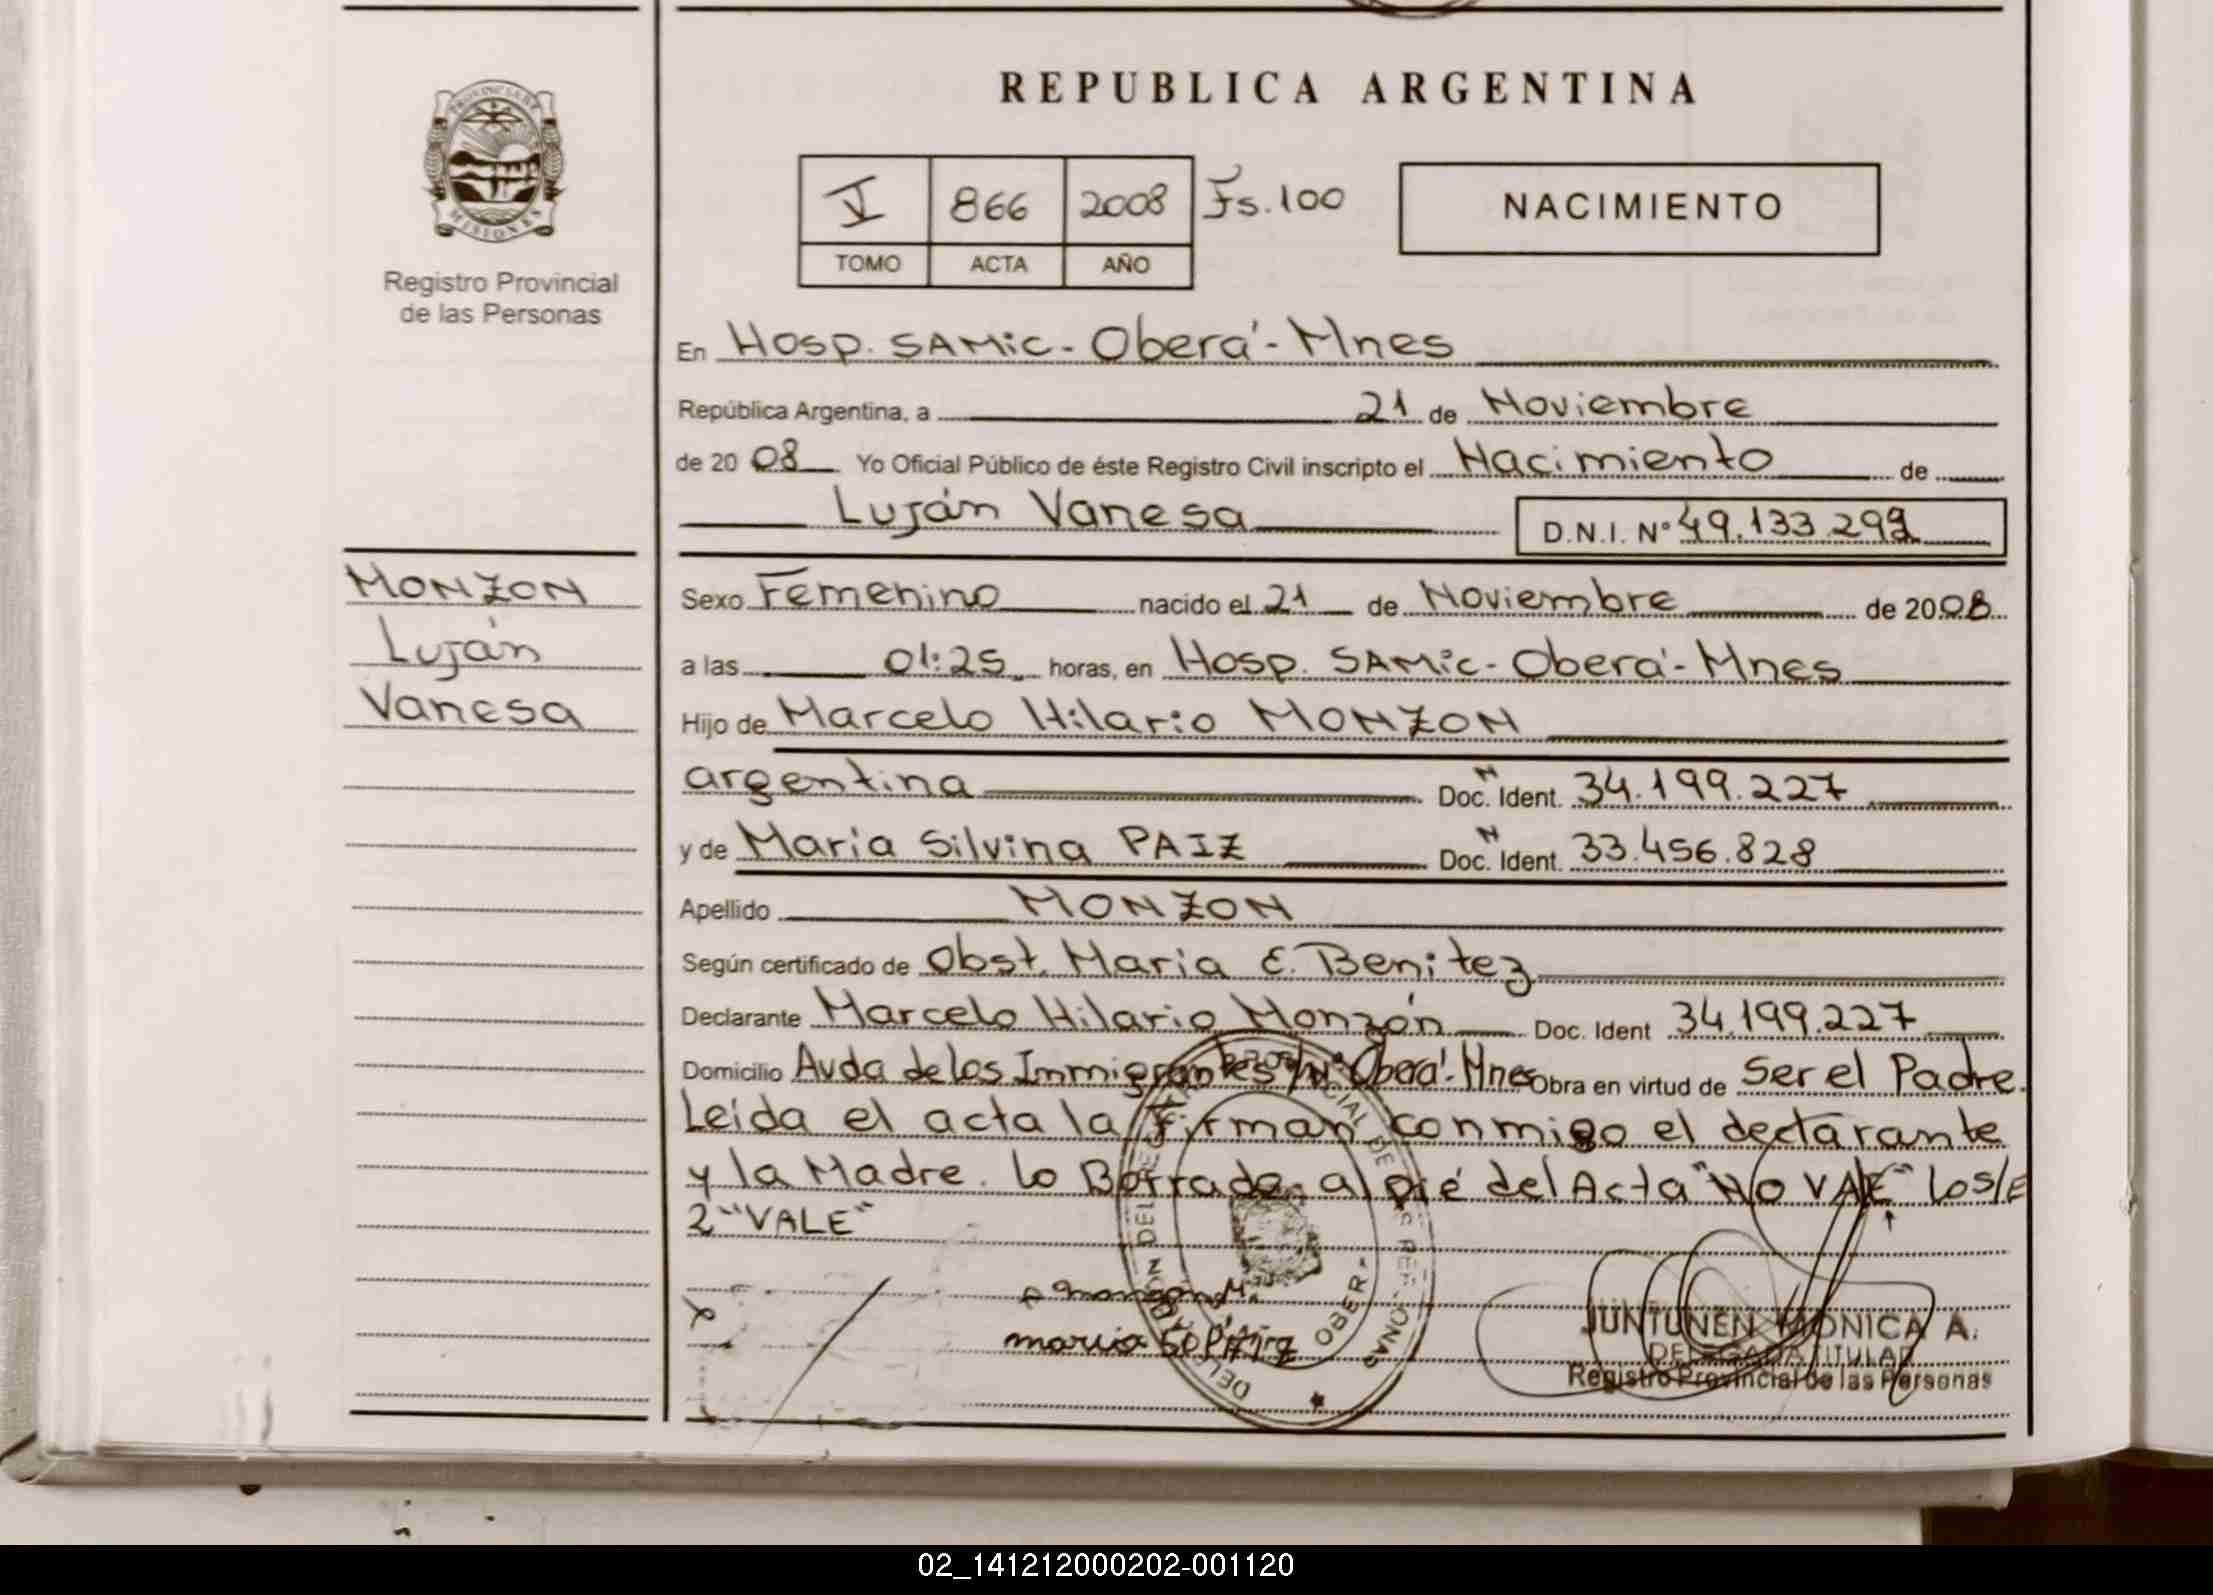 REPUBLICA ARGENTINA
PROVINCIA DE
MISIONES
Registro Provincial
de las Personas
V 866 2008 Fs. 100
TOMO ACTA AÑO
NACIMIENTO
En Hosp. SAMic - Oberá - Mnes
República Argentina, a 21 de Noviembre
de 20 08 Yo Oficial Público de éste Registro Civil inscripto el Nacimiento de
Luján Vanesa D.N.I. Nº 49.133.299
MONZON
Luján
Vanesa
Sexo Femenino nacido el 21 de Noviembre de 20 08
a las 01:25 horas, en Hosp. SAMic - Oberá - Mnes
Hijo de Marcelo Hilario MONZON
argentina Doc. N Ident. 34.199.227
y de María Silvina PAIZ Doc. N Ident. 33.456.828
Apellido MONZON
Según certificado de Obst. Maria E. Benitez
Declarante Marcelo Hilario Monzón Doc. Ident 34.199.227
Domicilio Avda de los Immigrantes s/Nº Oberá - Mnes Obra en virtud de Ser el Padre.
Leida el acta la Firman conmigo el declarante
y la Madre. Lo Borrado al pié del Acta "NO VALE" los/E
2 "VALE"
OBER
JUNTUNEN MONICA A.
DELEGADA TITULAR
Registro Provincial de las Personas
02_141212000202-001120